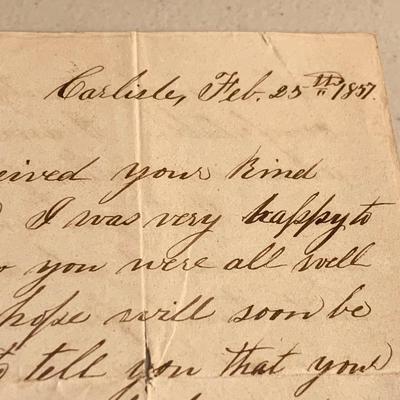 Carlisle, Feb. 25th 1857.
eived your kind
I was very happy to
you were all well
hope will soon be
tell you that your